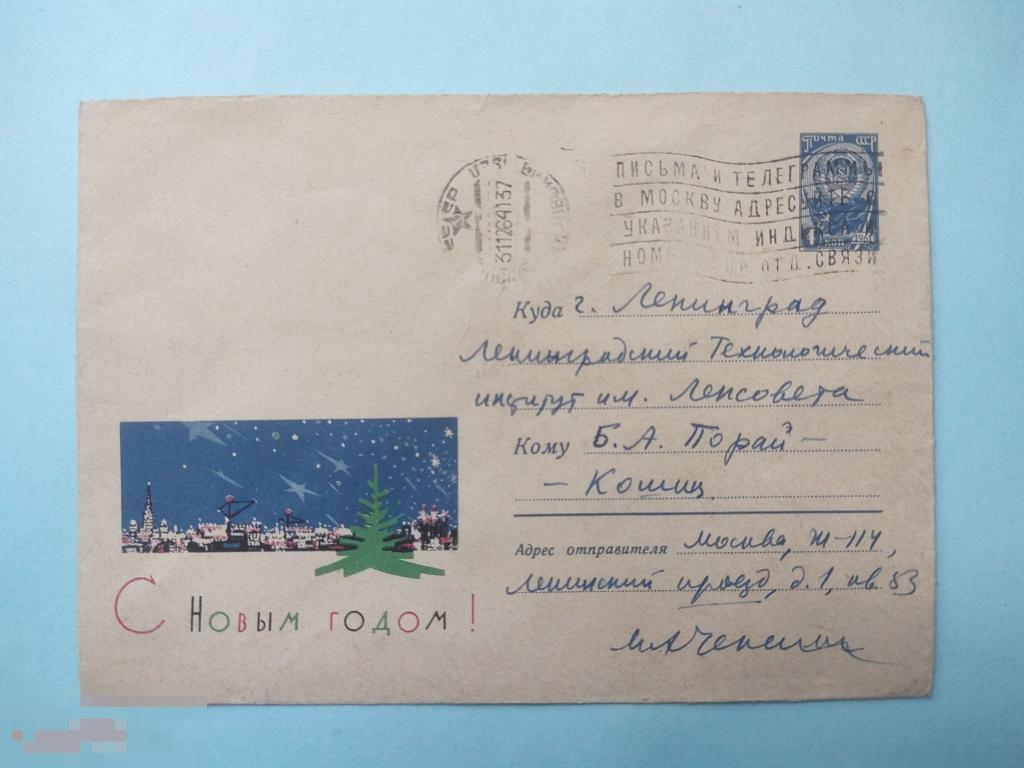 Почта СССР
31126413 7
ПИСЬМА И ТЕЛЕГРАММЫ
В МОСКВУ АДРЕСУЙТЕ С
УКАЗАНИЕМ ИНДЕКСА И
ОТД. СВЯЗИ
4 коп 1961
Куда г. Ленинград
Ленинградский Технологический
институт им. Ленсовета
Кому Б. А. Порай –
– Кошиц
Адрес отправителя Москва, Ж-114,
Ленинский проезд, д. 1, кв. 83
С Новым годом!